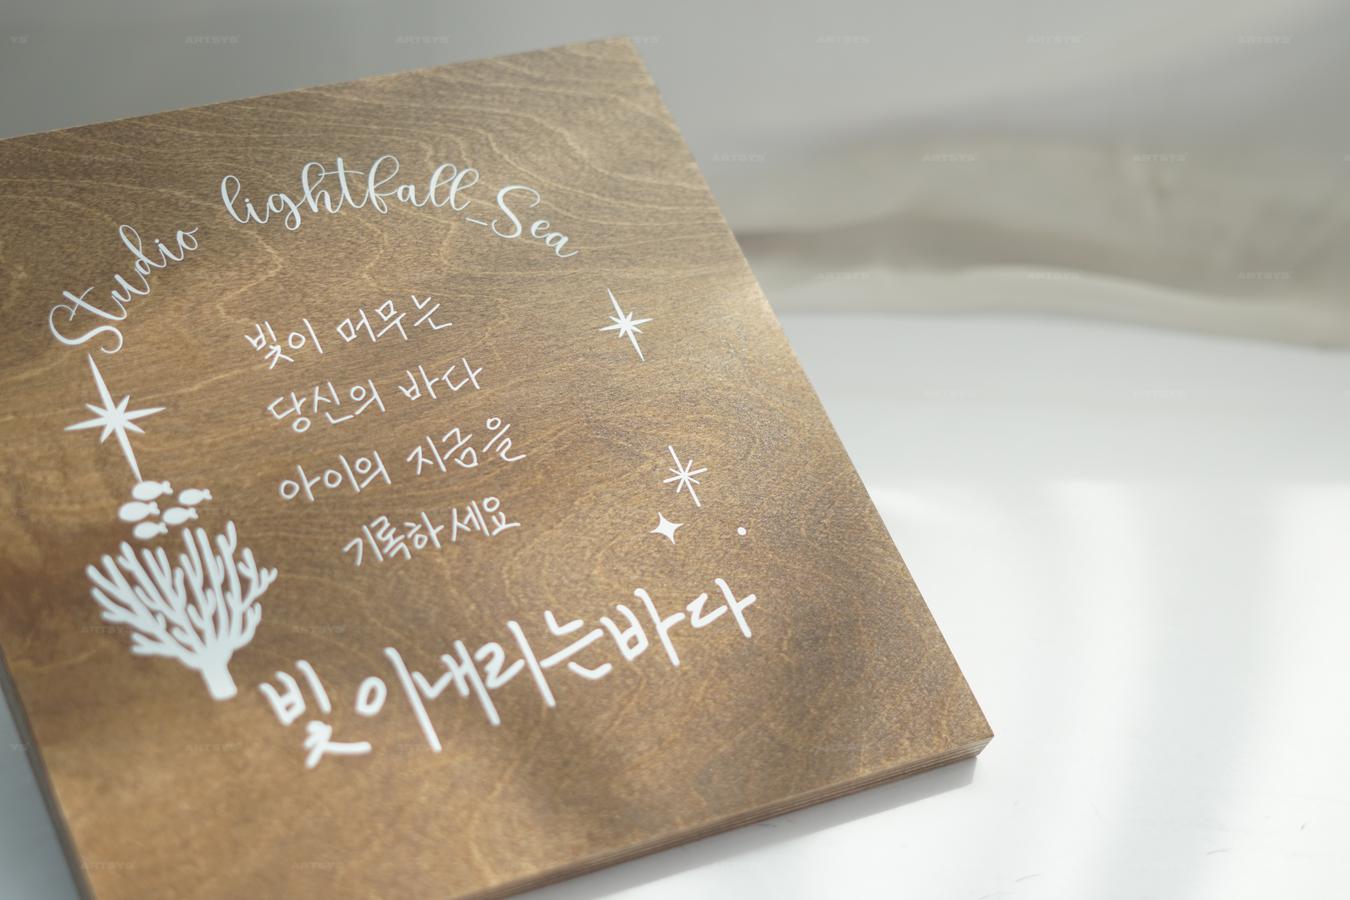 Studio lightfall_Sea
빛이 머무는
당신의 바다
아이의 지금을
기록하세요
빛이내리는바다
ARTSYS